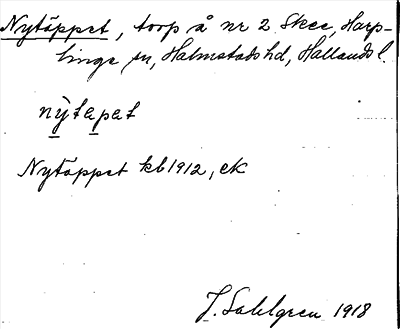 Nytäppet, torp å nr 2 Skee, Harp-
linge sn, Halmstads hd, Hallands l.
nỳtapat
Nytäppet kb 1912, ek
J. Sahlgren 1918